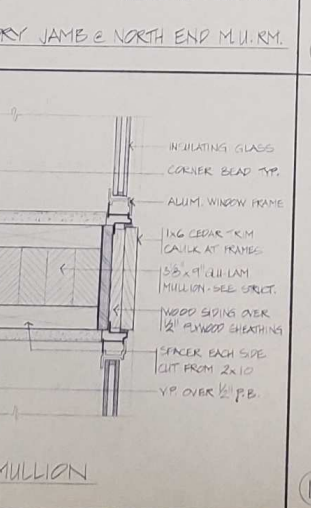 RY JAMB @ NORTH END M.U. RM.
INSULATING GLASS
CORNER BEAD TYP.
ALUM. WINDOW FRAME
1x6 CEDAR TRIM
CAULK AT FRAMES
x 9" GLU-LAM
MULLION - SEE STRUCT.
WOOD SIDING OVER
1/2" PLYWOOD SHEATHING
SPACER EACH SIDE
CUT FROM 2x10
V.P. OVER 1/2" P.B.
MULLION